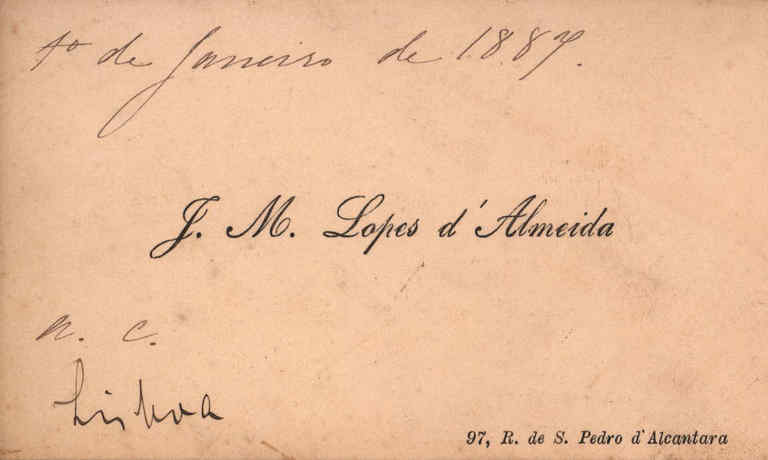 1º de Janeiro de 1887.
J. M. Lopes d'Almeida
n. c.
Lisboa
97, R. de S. Pedro d'Alcantara